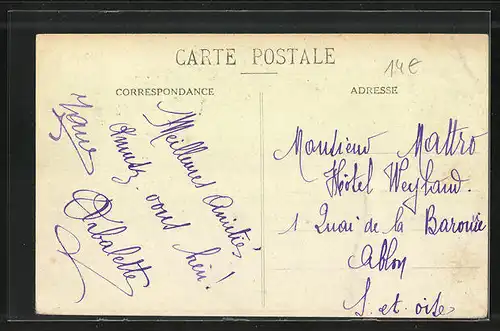 CARTE POSTALE
14€
CORRESPONDANCE
ADRESSE
Meilleures Amitiés
vous bien!
Arbalette
Monsieur Mattro
Hôtel Weyland.
1 Quai de la Baronnie
Ablon
S. et oise